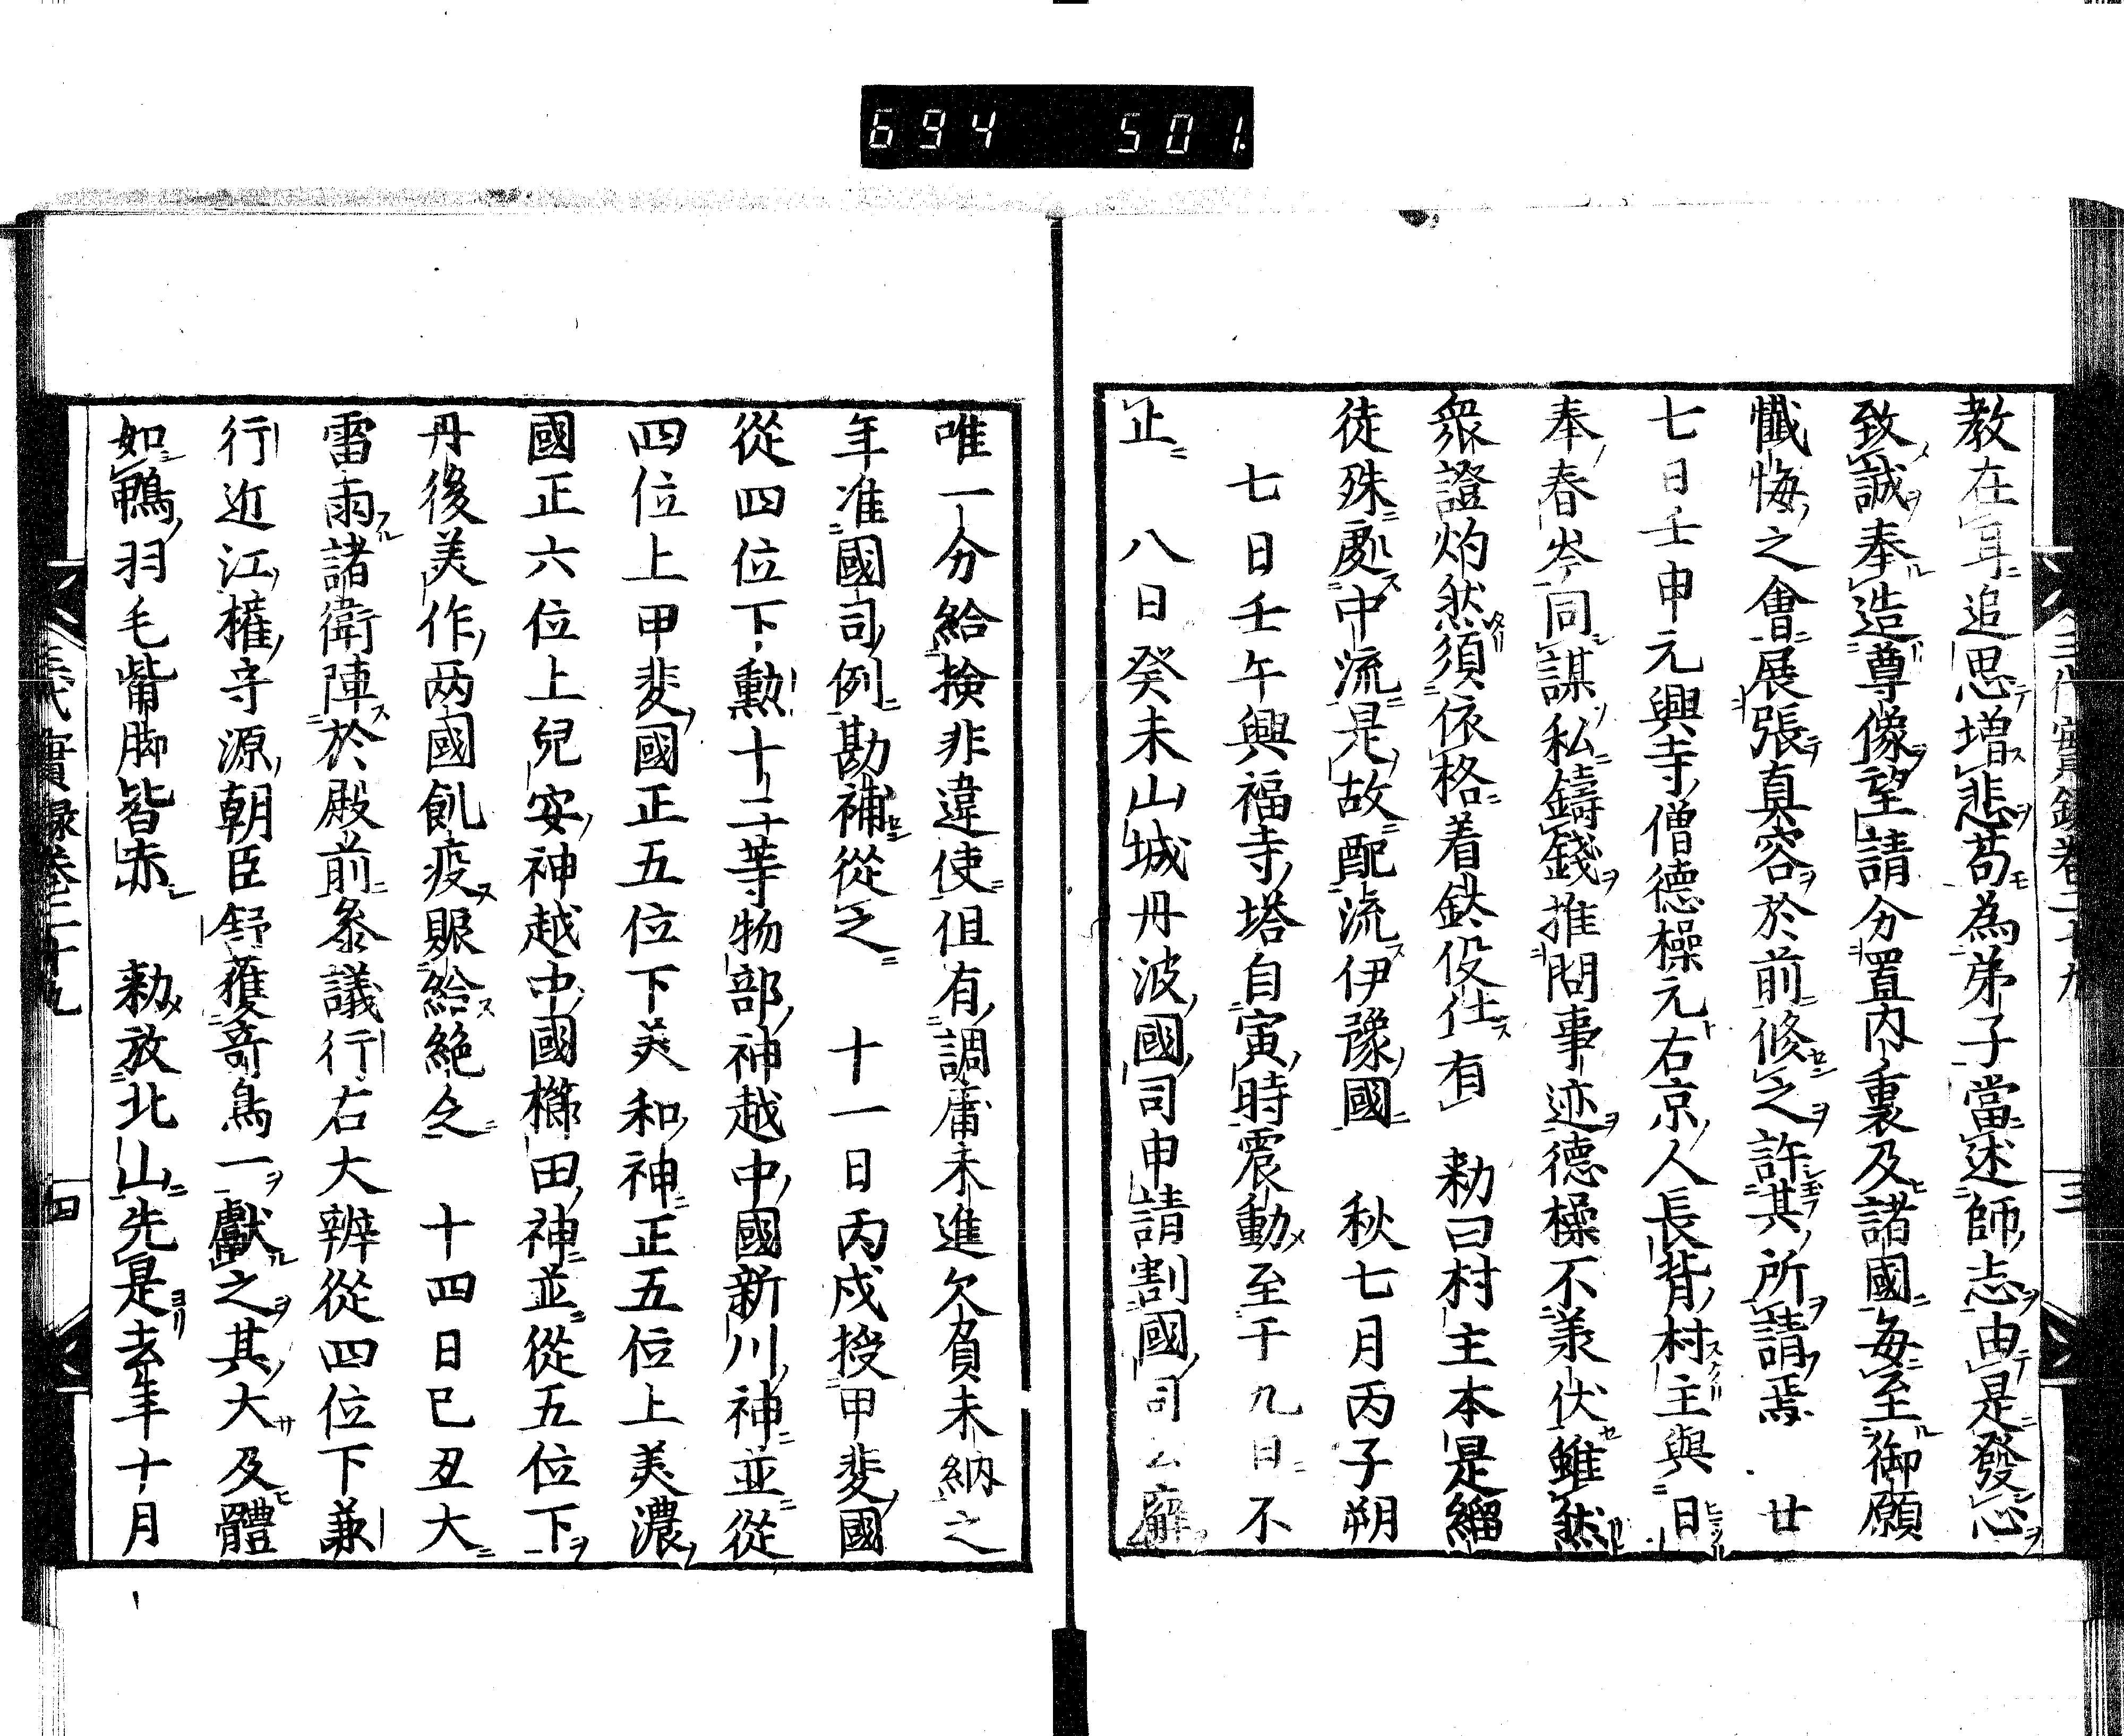 694 501.
三代實録卷二十九 三
教在耳追思增悲苟為弟子當述師志由是發心
致誠奉造尊像望請分置內裏及諸國每至御願
懺悔之會展張真容於前修之許其所請焉 廿
七日壬申元興寺僧德操元右京人長背村主與日
奉春岑同謀私鑄錢推問事迹德操不羕伏雖然
衆證灼然須依格着鈦役仕有 勅曰村主本是緇
徒殊處中流是故配流伊豫國 秋七月丙子朔
七日壬午興福寺塔自寅時震動至于九日不
止 八日癸未山城丹波國司申請割國司公廨
唯一分給撿非違使但有調庸未進欠負未納之
年准國司例勘補從之 十一日丙戌授甲斐國
從四位下勳十二等物部神越中國新川神並從
四位上甲斐國正五位下美和神正五位上美濃
國正六位上兒安神越中國櫛田神並從五位下
丹後美作兩國飢疫賑給絶乏 十四日己丑大
雷雨諸衛陣於殿前叅議行右大辨從四位下兼
行近江權守源朝臣舒獲奇鳥一獻之其大及體
如鴨羽毛觜脚皆赤 勅放北山先是去年十月
三代實録卷二十九 四